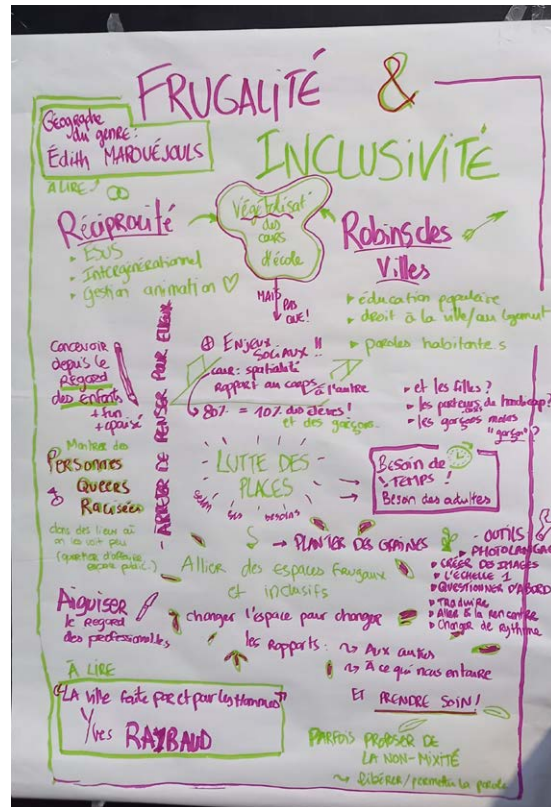 FRUGALITÉ &
INCLUSIVITÉ
Géographe
du genre:
Édith MARUÉJOULS
À LIRE!
Végétalisat°
des
cours
d'école
Réciprocité
▸ ESUS
▸ Intergénérationnel
▸ Gestion animation ♡
Robins des
Villes
▸ éducation populaire
▸ droit à la ville/au logement
▸ paroles habitantes
MAIS PAS
QUE!
Concevoir
depuis le
REGARD
des ENFANTS
+ fun
+ apaisé
- ARRÊTER DE PENSER POUR EUX/ELLES
⊕ ENJEUX
SOCIAUX !!
cour: spatialité
rapport au corps
à l'autre
80% = 10% des élèves!
et des garçons...
▸ et les filles?
▸ les porteurs de handicap?
▸ les garçons moins
"garçon"?
Montrer des
PERSONNES
QUEERS
& RACISÉES
dans des lieux où
on les voit peu
(quartier d'affaire,
espace public..)
LUTTE DES
PLACES
SELON SES besoins
Besoin de
TEMPS!
Besoin des adultes
→ PLANTER DES GRAINES
Allier des espaces frugaux
et inclusifs
- OUTILS
▸ PHOTOLANGAGE
▸ CRÉER DES IMAGES
▸ L'ÉCHELLE 1
▸ QUESTIONNER D'ABORD
▸ Traduire
▸ Aller à la rencontre
▸ Changer de Rythme
Aiguiser
le regard
des professionelles
changer l'espace pour changer
les rapports: Aux autres
À ce qui nous entoure
ET PRENDRE SOIN!
À LIRE
"LA ville faite par et pour les Hommes"
Yves RAYBAUD
PARFOIS PROPOSER DE
LA NON-MIXITÉ
libérer/permettre la parole